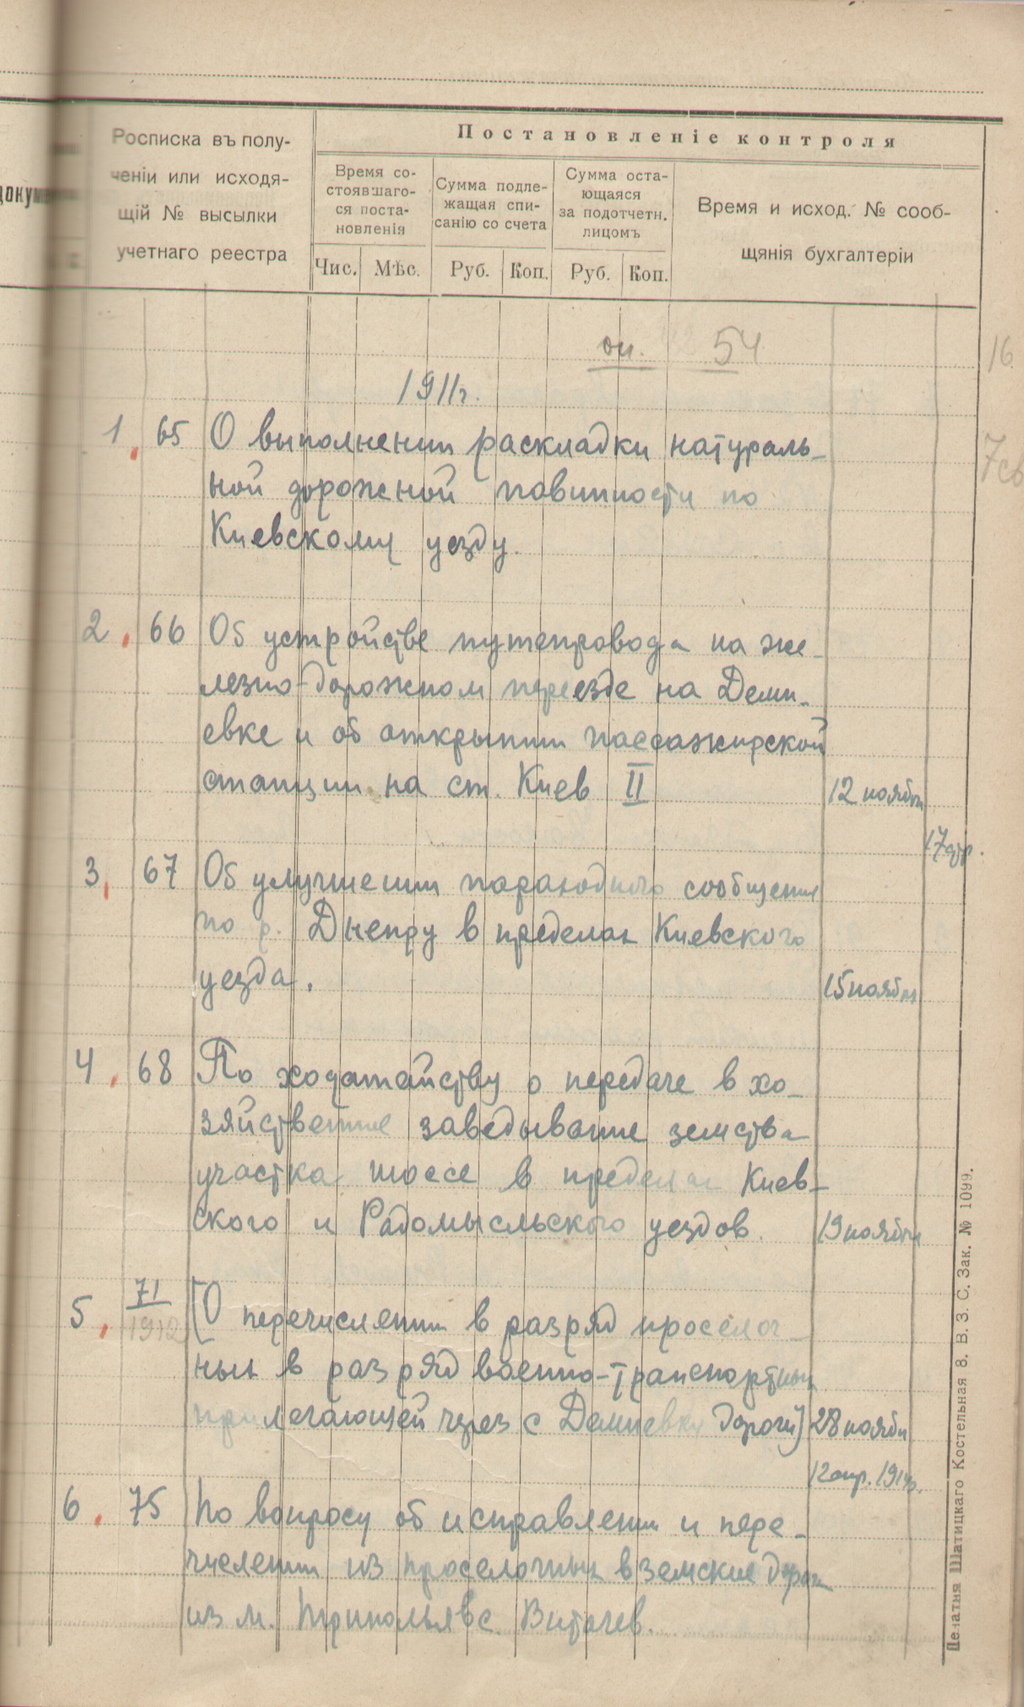 Росписка въ полу-
ченіи или исходя-
щій № высылки
учетнаго реестра
Постановленіе контроля
Время со-
стоявшаго-
ся поста-
новленія
Сумма подле-
жащая спи-
санію со счета
Сумма оста-
ющаяся
за подотчетн.
лицомъ
Время и исход. № сооб-
щянія бухгалтеріи
Чис. Мѣс. Руб. Коп. Руб. Коп.
оп. 54
16
1911г.
1. 65 О выполнении раскладки натураль-
ной дорожной повинности по
Киевскому уезду.
2. 66 Об устройстве путепровода на же-
лезно-дорожном переезде на Деми-
евке и об открытии пассажирской
станции на ст. Киев II 12 ноября
3. 67 Об улучшении пароходного сообщения
по р. Днепру в пределах Киевского
уезда. 15 ноября
4. 68 По ходатайству о передаче в хо-
зяйственное заведывание земства
участка шоссе в пределах Киев-
ского и Радомысльского уездов. 19 ноября
5. 71/1912 [О перечислении в разряд проселоч-
ных в разряд военно-транспортных
прилегающей через с Демиевку дороги] 28 ноября
12 апр.
6. 75 По вопросу об исправлении и пере-
числении из проселочных в земские дорог
из м. Триполья в с. Витачев.
Печатня Шатицкаго Костельная 8. В. З. С. Зак. № 1099.